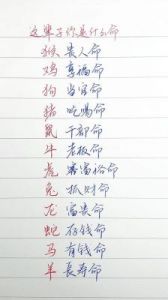 这辈子你是什么命
猴 贵人命
鸡 享福命
狗 当官命
猪 吃喝命
鼠 干部命
牛 老板命
虎 暴富裕命
兔 抓财命
龙 富贵命
蛇 存钱命
马 有钱命
羊 长寿命